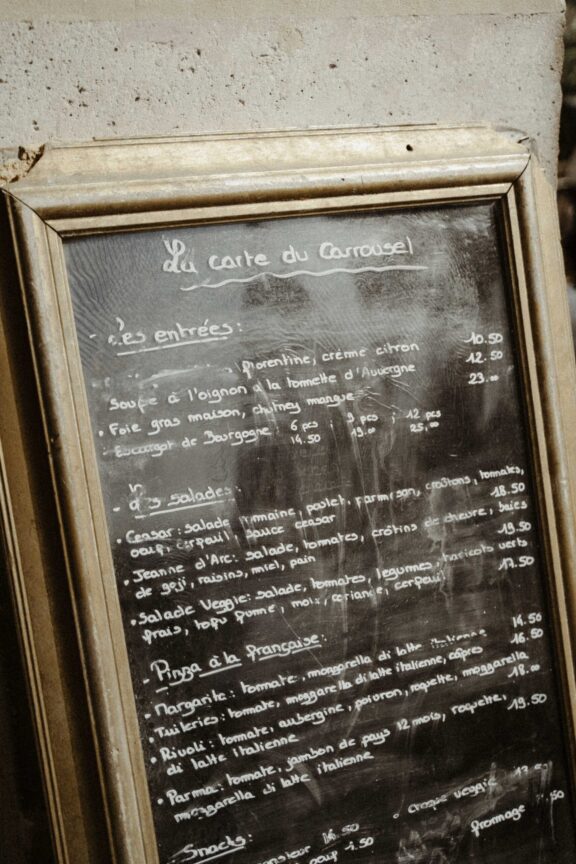 La carte du Carrousel
- Les entrées :
florentine, crème citron 10.50
Soupe à l'oignon à la tommette d'Auvergne 12.50
• Foie gras maison, chutney mangue 23.00
• Escargot de Bourgogne 6 pcs ; 9 pcs ; 12 pcs
14.50 19.00 25.00
- Les salades :
• Ceasar : salade romaine, poulet, parmesan, croûtons, tomates,
oeuf, cerfeuil, sauce ceasar 18.50
• Jeanne d'Arc : salade, tomates, crôtins de chèvre, baies
de goji, raisins, miel, pain 19.50
• Salade Veggie : salade, tomates, légumes, haricots verts
frais, tofu fumé, maïs, coriandre, cerfeuil 17.50
- Pizza à la française :
• Margarita : tomate, mozzarella di latte italienne 14.50
• Tuileries : tomate, mozzarella di latte italienne, câpres 16.50
• Rivoli : tomate, aubergine, poivron, roquette, mozzarella
di latte italienne 18.00
• Parma : tomate, jambon de pays 12 mois, roquette,
mozzarella di latte italienne 19.50
- Snacks :
monsieur 16.50 • Croque veggie
oeuf 1.50 fromage